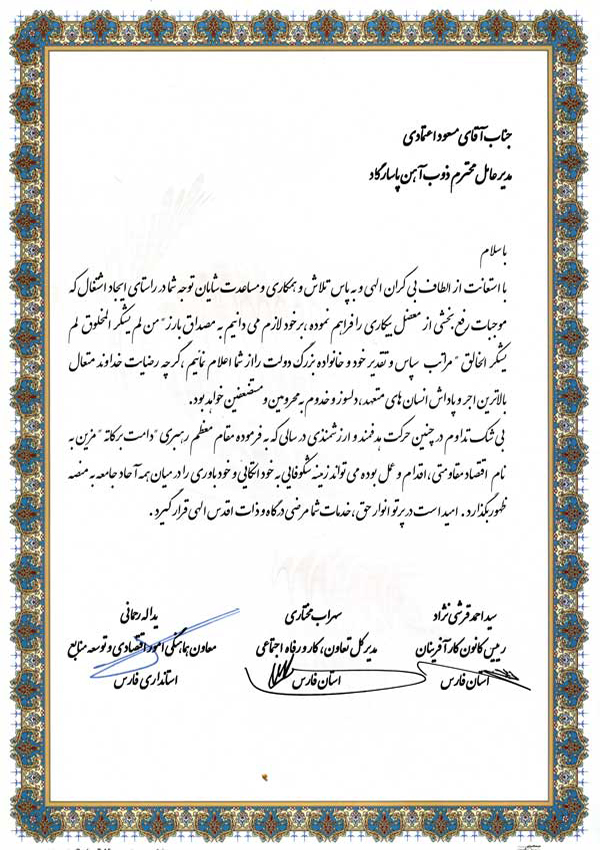 جناب آقای مسعود اعتمادی
مدیر عامل محترم ذوب آهن پاسارگاد
باسلام
با استعانت از الطاف بی کران الهی و به پاس تلاش و همکاری و مساعدت شایان توجه شما در راستای ایجاد اشتغال که
موجبات رفع بخشی از معضل بیکاری را فراهم نموده ،بر خود لازم می دانیم به مصداق بارز "من لم یشکر المخلوق لم
یشکر الخالق" مراتب سپاس و تقدیر خود و خانواده بزرگ دولت را از شما اعلام نمائیم ،گرچه رضایت خداوند متعال
بالاترین اجر و پاداش انسان های متعهد، دلسوز و خدوم به محرومین و مستضعفین خواهد بود.
بی شک تداوم در چنین حرکت هدفمند و ارزشمندی در سالی که به فرموده مقام معظم رهبری "دامت برکاته" مزین به
نام اقتصاد مقاومتی، اقدام و عمل بوده می تواند زمینه شکوفایی به خود اتکایی و خود باوری را در میان همه آحاد جامعه به منصه
ظهور بگذارد. امید است در پرتو انوار حق، خدمات شما مرضی درگاه و ذات اقدس الهی قرار گیرد.
سید احمد قرشی نژاد سهراب مختاری یداله رحمانی
رییس کانون کارآفرینان مدیر کل تعاون، کار و رفاه اجتماعی معاون هماهنگی امور اقتصادی و توسعه منابع
استان فارس استان فارس استانداری فارس